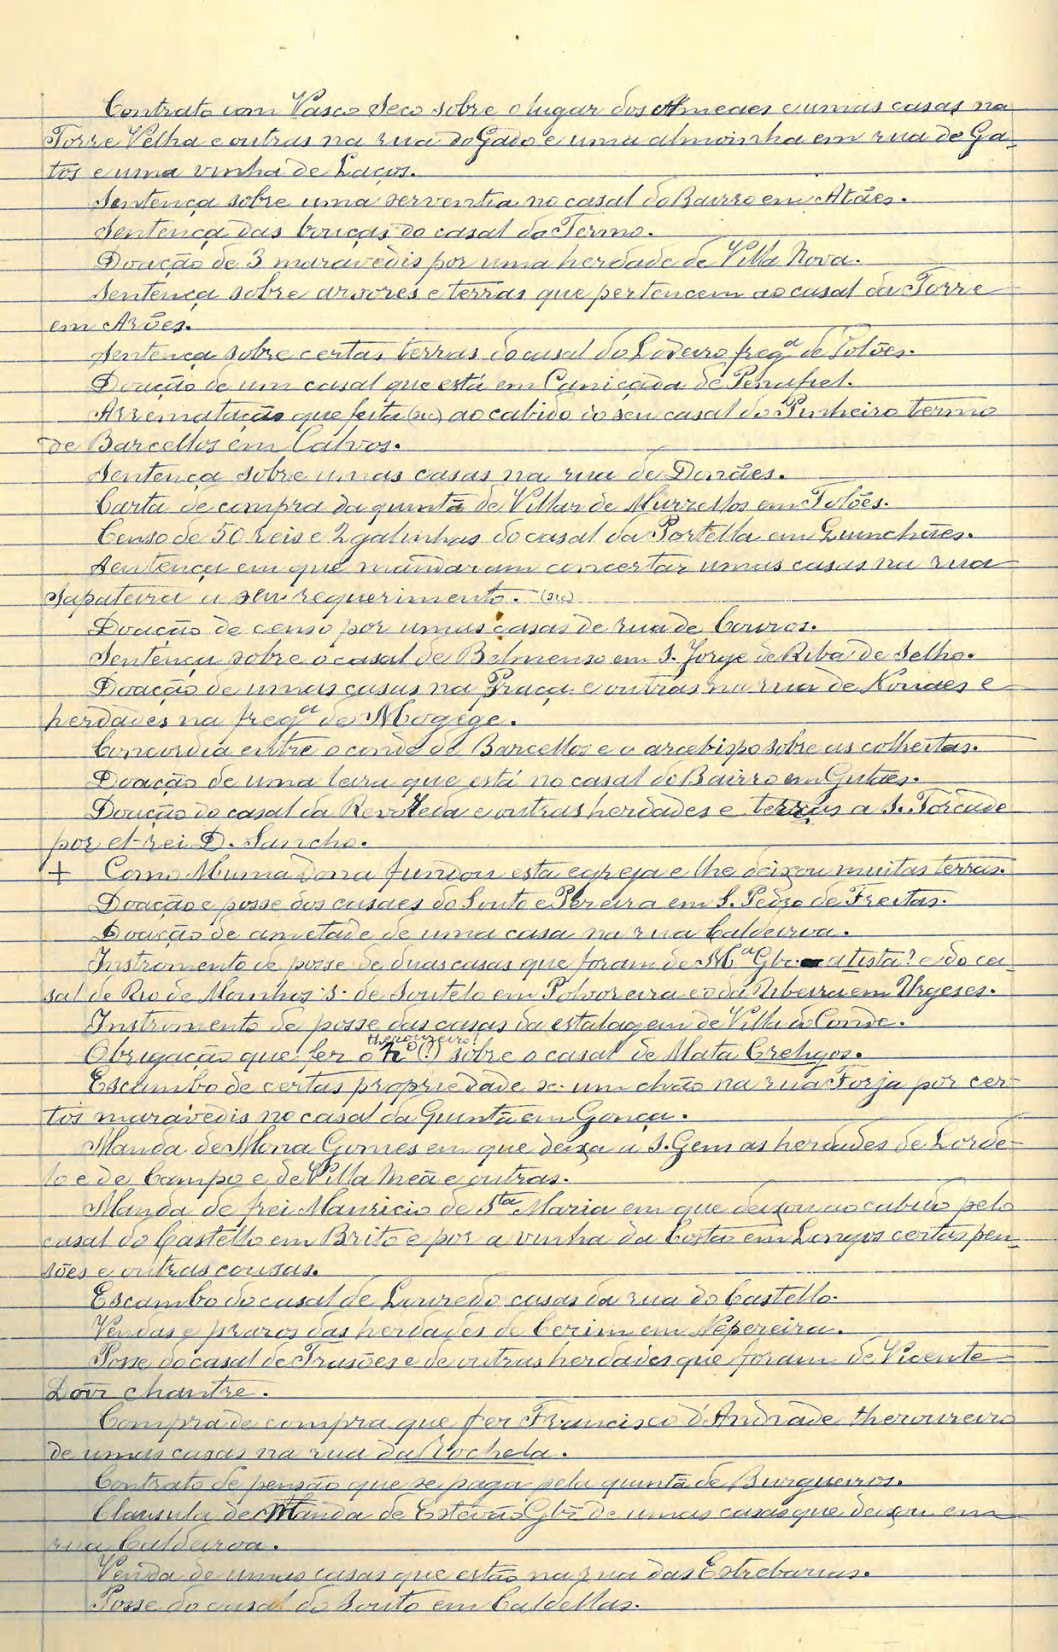 Contrato com Vasco Seco sobre o lugar dos Ameaes e umas casas na
Torre Velha e outras na rua do Gado e uma almoinha em rua de Ga-
tos e uma vinha de Laços.
Sentença sobre uma serventia no casal do Bairro em Atães.
Sentença das bouças do casal do Termo.
Doação de 3 maravedis por uma herdade de Villa Nova.
Sentença sobre arvores e terras que pertencem ao casal da Torre
em Arões.
Sentença sobre certas terras do casal do Lodeiro freg.ª de Tolões.
Doação de um casal que está em Caniçada de Penafiel.
Arrematação que feita (sic) ao cabido do seu casal do Pinheiro termo
de Barcellos em Calvos.
Sentença sobre umas casas na rua de Donães.
Carta de compra da quintã de Villar de Murzellos em Tolões.
Censo de 50 reis e 2 galinhas do casal da Portella em Guinchães.
Sentença em que mandaram concertar umas casas na rua
Sapateira a seu requerimento. (sic)
Doação de censo por umas casas de rua de Couros.
Sentença sobre o casal de Belmenso em S. Jorge de Riba de Selho.
Doação de umas casas na Praça e outras na rua de Nonaes e
herdades na freg.ª de Mogege.
Concordia entre o conde de Barcellos e o arcebispo sobre as colheitas.
Doação de uma leira que está no casal do Bairro em Gulães.
Doação do casal da e outras herdades e terras a S. Torcade
por el-rei D. Sancho.
+ Como Mumadona fundou esta egreja e lhe deixou muitas terras.
Doação e posse dos casaes do Souto e Pereira em S. Pedro de Freitas.
Doação de ametade de uma casa na rua Caldeiroa.
Instromento de posse de duas casas que foram de M.ª Glz atista? e do ca-
sal de Rio de Moinhos :s: de Soutelo em Polvoreira e o da Ribeira em Urgeses.
Instromento de posse das casas da estalagem de Villa do Conde.
thezoureiro!
Obrigação que fez o h.º (!) sobre o casal de Mata Crelgos.
Escambo de certas propriedade sc. um chão na rua Forja por cer-
tos maravedis no casal da Quintã em Gonça.
Manda de Mona Gomes em que deixa a S. Gem as herdades de Lorde-
lo e de Campo e de Villa Meã e outras.
Manda de frei Mauricio de S.ta Maria em que deixou ao cabido pelo
casal do Castello em Brito e por a vinha da Costa em Longos certas pen-
sões e outras cousas.
Escambo do casal de Louredo casas da rua do Castello.
Vendas e prazos das herdades de Cerim em Nepereira.
Posse do casal de Trasões e de outras herdades que foram de Vicente
chantre.
Compra de compra que fez Francisco d'Andrade thezoureiro
de umas casas na rua da Rochela.
Contrato de pensão que se paga pela quintã de Burgueiros.
Clausula de Manda de Estevão Glz de umas casas que deixou em
rua Caldeiroa.
Venda de umas casas que estão na rua das Estrebarias.
Posse do casal do Souto em Caldellas.